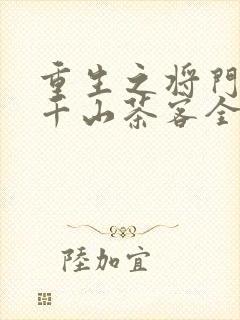 重生之将門
千山茶客全
陸加宜